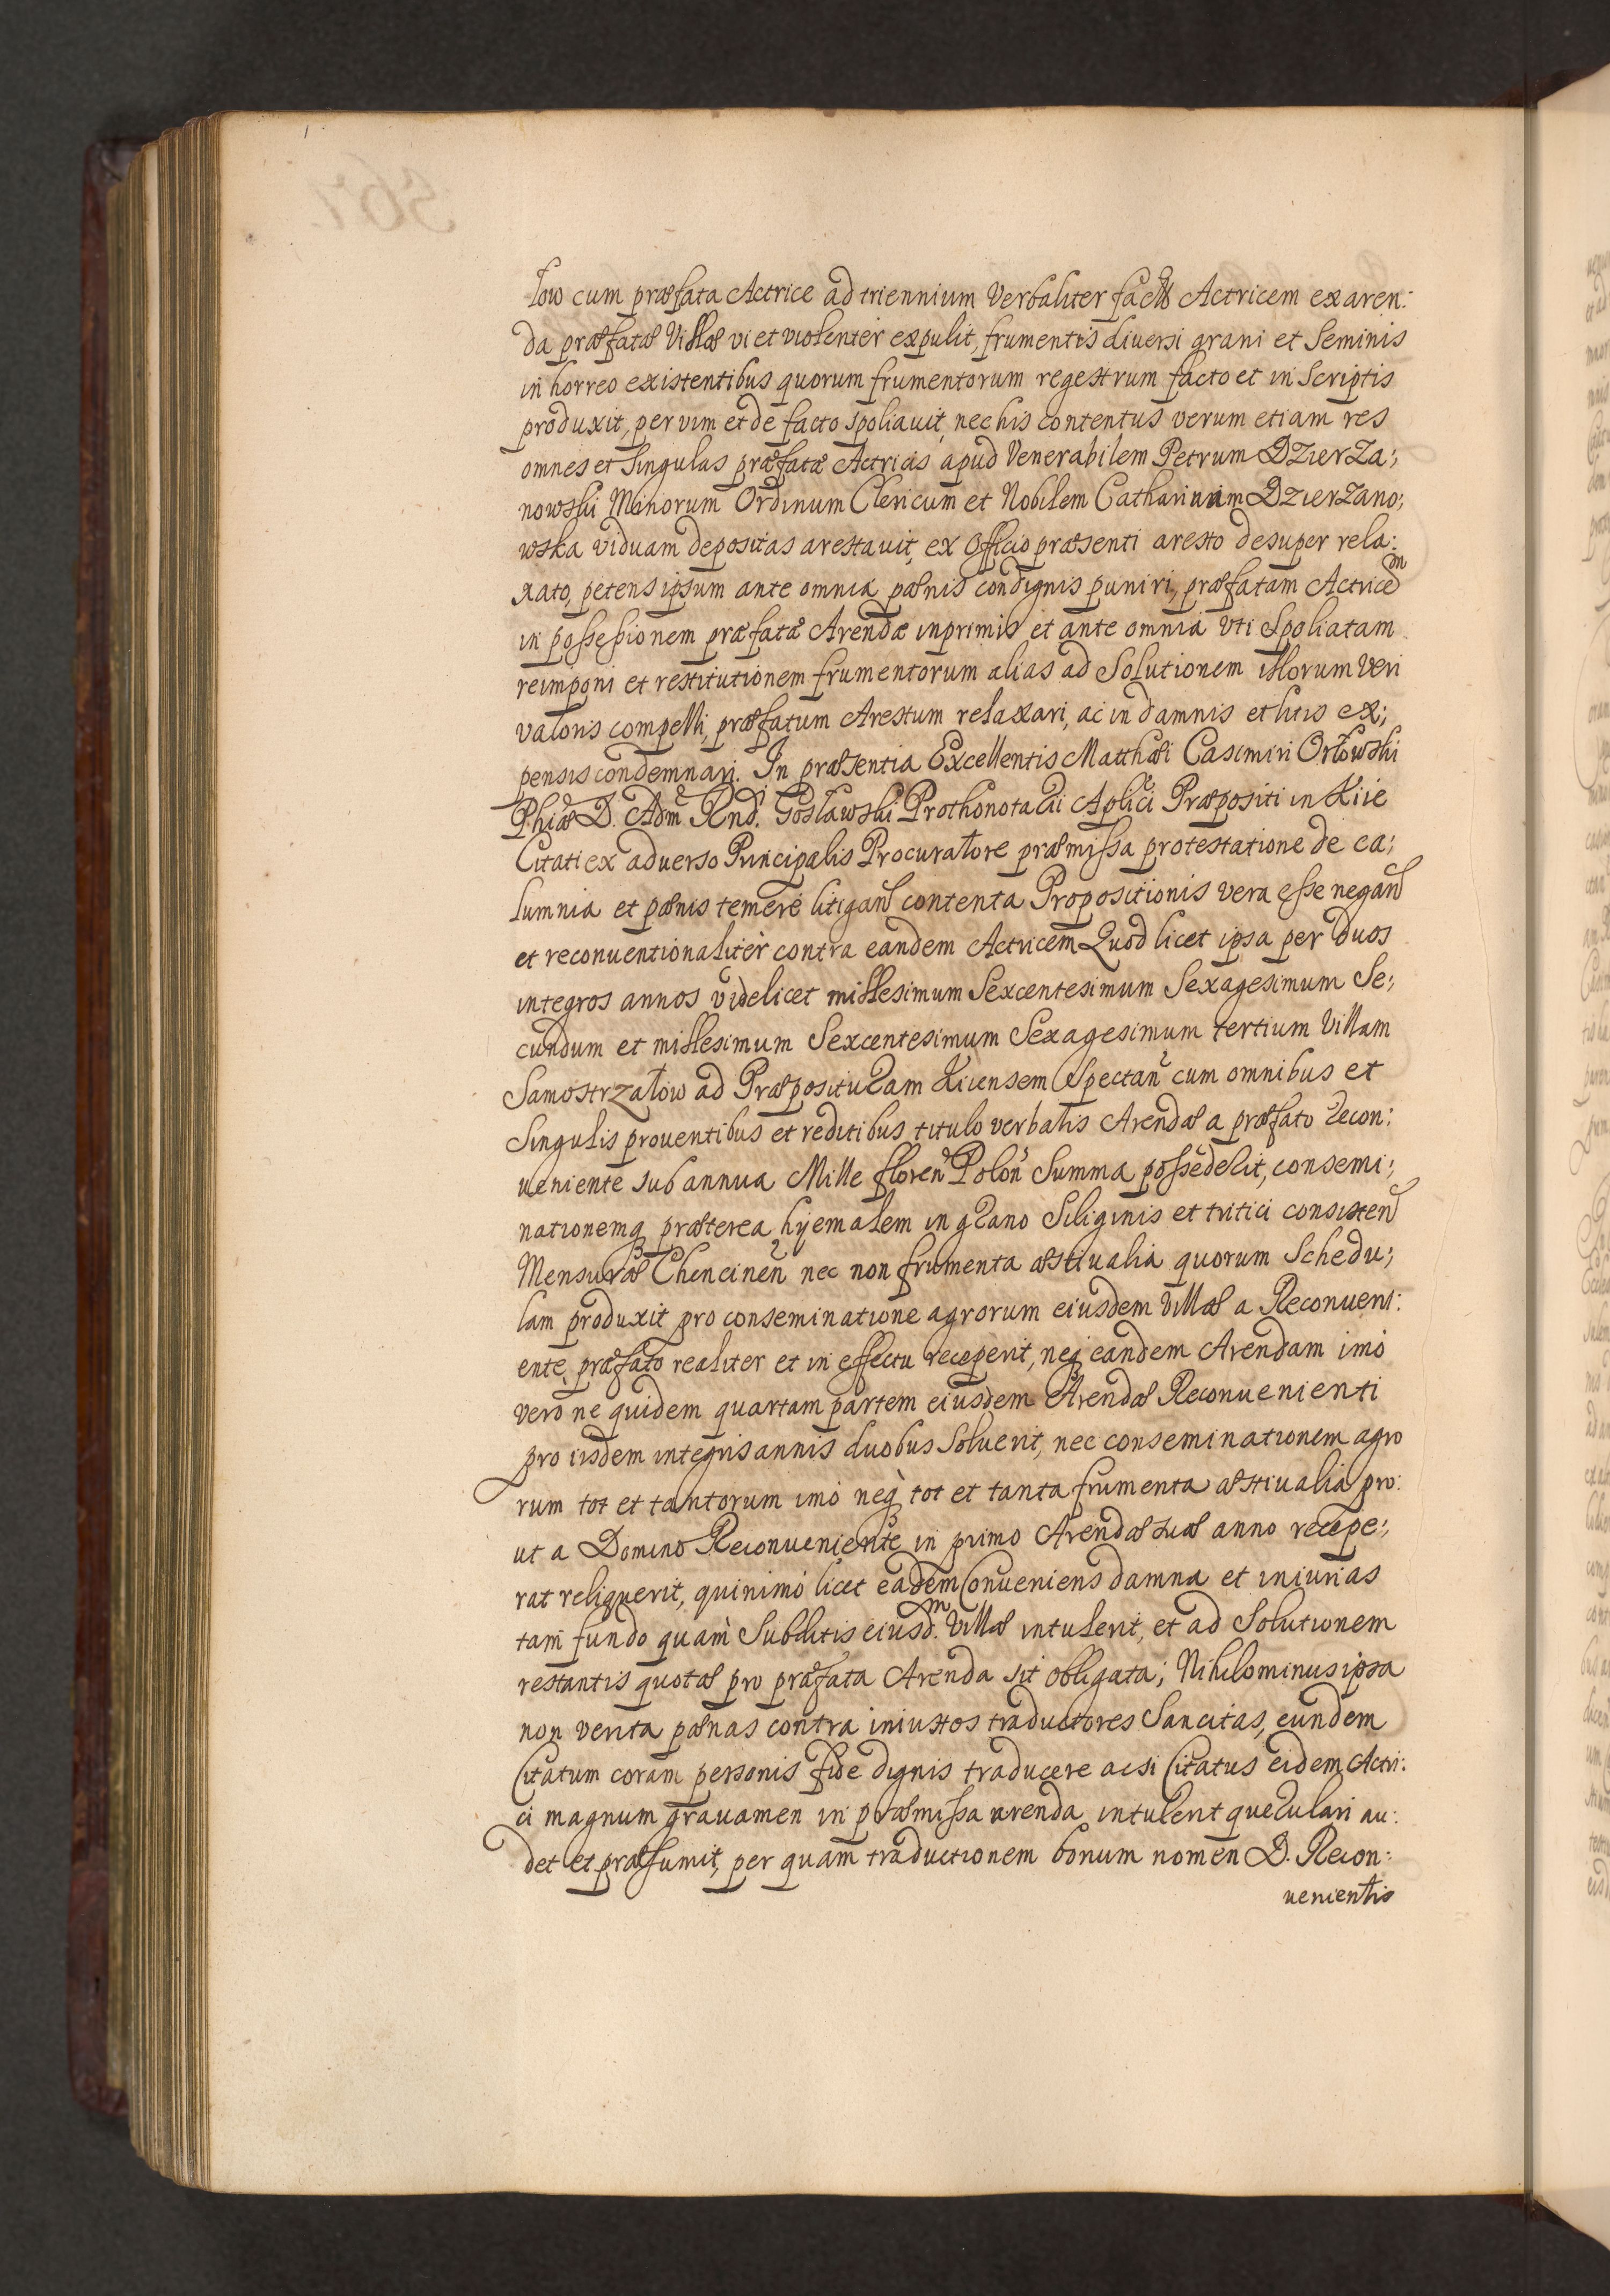 łow cum præfata Actrice ad triennium Verbaliter factis Actricem ex aren:
da præfatæ Villæ vi et violenter expulit, frumentis diuersi grani et Seminis
in horreo existentibus quorum frumentorum regestrum facto et in Scriptis
produxit, per vim et de facto spoliauit, nec his contentus verum etiam res
omnes et Singulas præfatæ Actricis apud Venerabilem Petrum DzierZa:,
nowski Minorum Ordinum Clericum et Nobilem Catharinam DzierZano;
wska viduam depositas arestauit, ex Officio præsenti aresto desuper rela:
xato, petens ipsum ante omnia pœnis condignis puniri, præfatam Actricem
in possessionem præfatæ Arendæ inprimis et ante omnia Vti Spoliatam
reimponi et restitutionem frumentorum alias ad Solutionem illorum Veri
valoris compelli, præfatum Arestum relaxari, ac in damnis et litis ex;
pensis condemnari. In præsentia Excellentis Matthæi Casimiri Orłowski
Phiæ D. Adm Rndi Gosławski Prothonotarii Aplici Præpositi in Kiie
Citati ex aduerso Principalis Procuratore præmissa protestatione de ca;
lumnia et pœnis temere litigan contenta Propositionis vera esse negan
et reconuentionaliter contra eandem Actricem Quod licet ipsa per duos
integros annos videlicet millesimum Sexcentesimum Sexagesimum Se;
cundum et millesimum Sexcentesimum Sexagesimum tertium Villam
Samostrzałow ad Præposituram Kicensem Spectan cum omnibus et
Singulis prouentibus et reditibus titulo verbalis Arendæ a præfato recon:
ueniente sub annua Mille floren Polon Summa possederit, consemi:,
nationemq præterea hyemalem in grano Siliginis et tritici consisten
Mensuræ Chencinen nec non frumenta æstiualia quorum Schedu;
lam produxit pro conseminatione agrorum eiusdem Villæ a Reconueni:
ente præfato realiter et in effectu receperit, neq eandem Arendam imò
verò ne quidem quartam partem eiusdem Arendæ Reconuenienti
pro iisdem integris annis duobus Soluerit, nec conseminationem agro
rum tot et tantorum imò neq tot et tanta frumenta æstiualia pro:
ut a Domino Reconueniente in primo Arendæ suæ anno recepe:,
rat reliquerit, quinimò licet eadem Conueniens damna et iniurias
tam fundo quàm Subditis eiusdm. Villæ intulerit, et ad Solutionem
restantis quotæ pro præfata Arenda sit obligata; Nihilominus ipsa
non verita pœnas contra iniustos traductores Sancitas, eundem
Citatum coram personis fide dignis traducere acsi Citatus eidem Actri:
ci magnum grauamen in præmissa arenda intulerit querulari au:
det et præsumit, per quam traductionem bonum nomen D. Recon:
uenientis